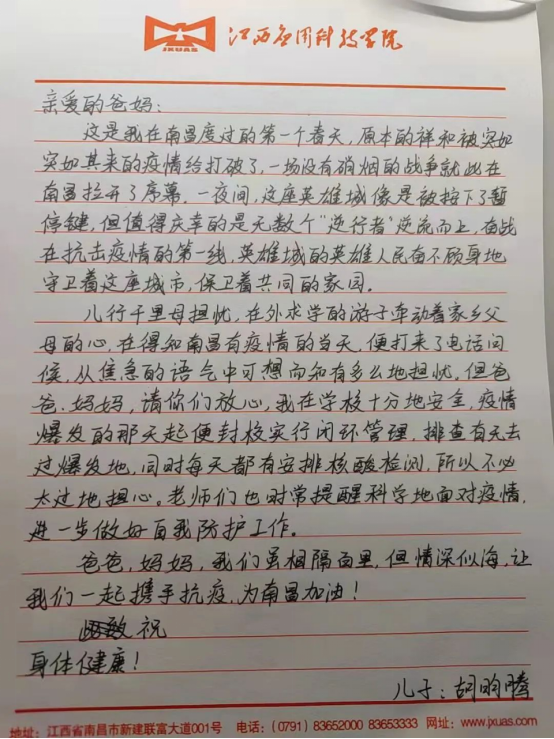 JXUAS
江西应用科技学院
亲爱的爸妈：
这是我在南昌度过的第一个春天，原本的祥和被突如
突如其来的疫情给打破了，一场没有硝烟的战争就此在
南昌拉开了序幕。一夜间，这座英雄城像是被按下了暂
停键，但值得庆幸的是无数个“逆行者”逆流而上，奋战
在抗击疫情的第一线，英雄城的英雄人民奋不顾身地
守卫着这座城市，保卫着共同的家园。
儿行千里母担忧，在外求学的游子牵动着家乡父
母的心，在得知南昌有疫情的当天，便打来了电话问
候，从焦急的语气中可想而知有多么地担忧，但爸
爸、妈妈，请你们放心，我在学校十分地安全，疫情
爆发的那天起便封校实行闭环管理，排查有无去
过爆发地，同时每天都有安排核酸检测，所以不必
太过地担心。老师们也时常提醒科学地面对疫情，
进一步做好自我防护工作。
爸爸，妈妈，我们虽相隔百里，但情深似海，让
我们一起携手抗疫，为南昌加油！
祝
身体健康！
儿子：胡昀腾
地址：江西省南昌市新建联富大道001号 电话：（0791）83652000 83653333 网址：www.jxuas.com